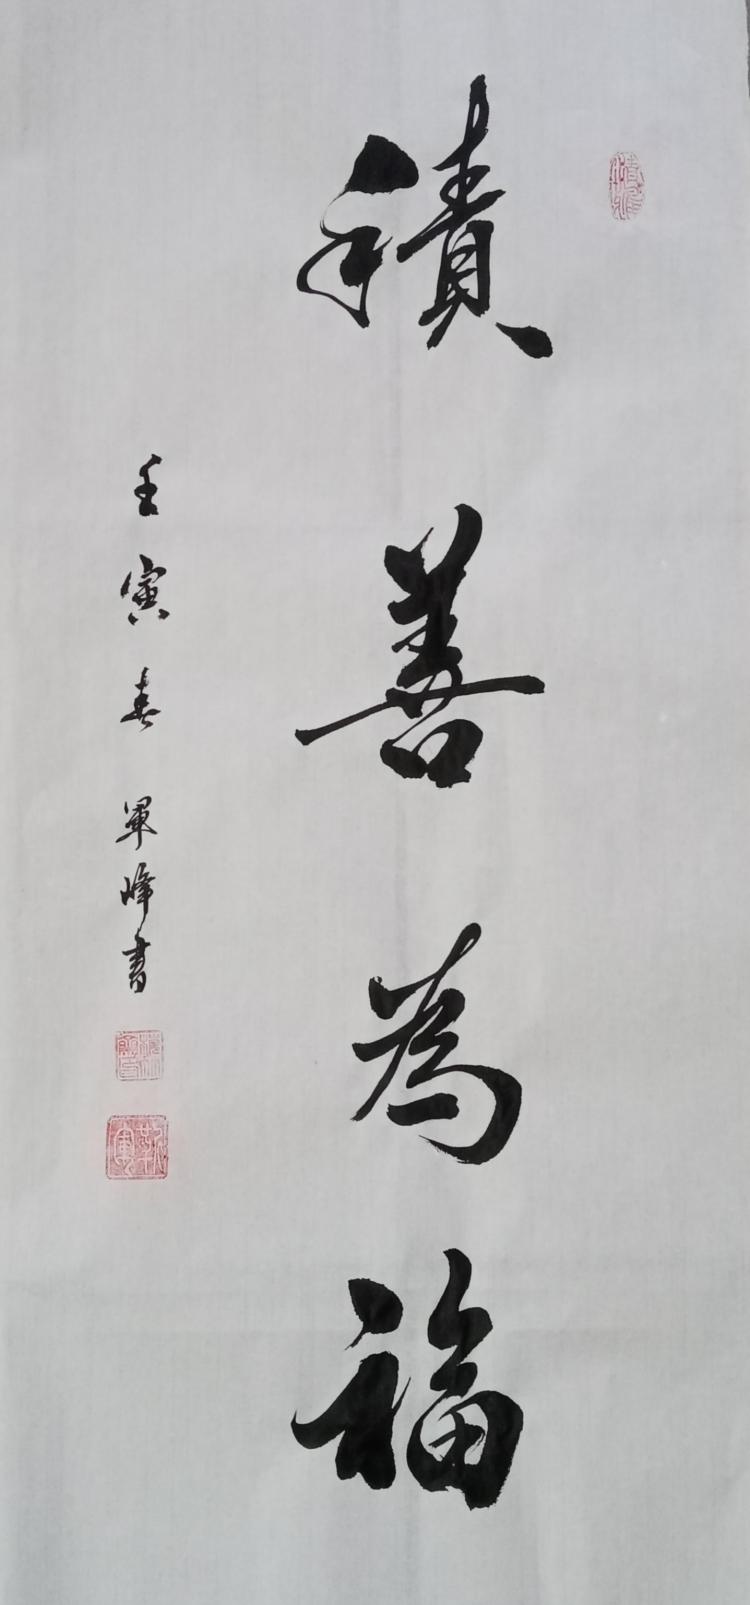 積善為福
壬寅春軍峰書